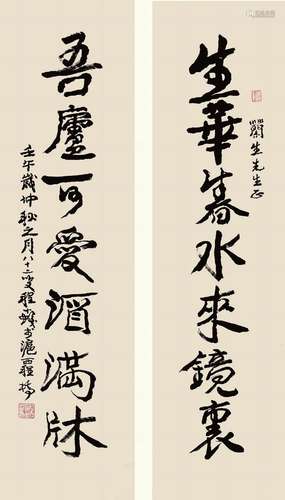 生華春水來鏡裏
蘭生先生正
吾廬可愛酒滿牀
壬午歲仲秋之月八十二叟程十髮書滬西程橋